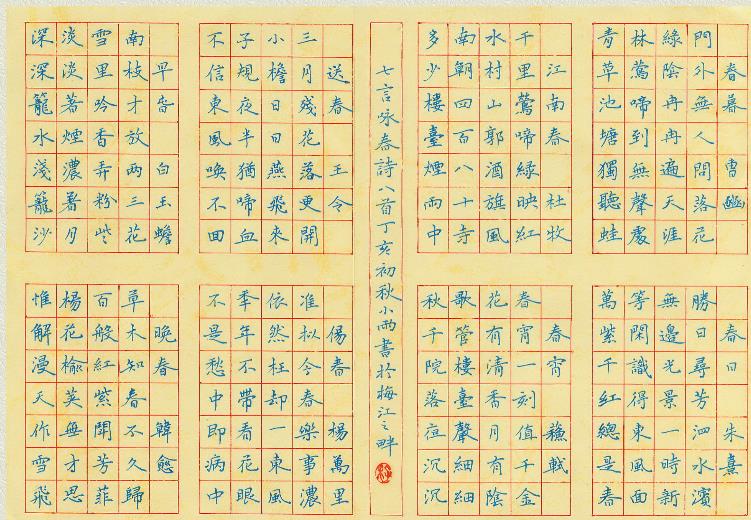 春暮 曹豳
門外無人問落花
綠陰冉冉遍天涯
林鶯啼到無聲處
青草池塘獨聽蛙
江南春 杜牧
千里鶯啼綠映紅
水村山郭酒旗風
南朝四百八十寺
多少樓臺煙雨中
春日 朱熹
勝日尋芳泗水濱
無邊光景一時新
等閑識得東風面
萬紫千紅總是春
春宵 蘇軾
春宵一刻值千金
花有清香月有陰
歌管樓臺聲細細
秋千院落夜沉沉
七言咏春詩八首丁亥初秋小雨書於梅江之畔
送春 王令
三月殘花落更開
小檐日日燕飛來
子規夜半猶啼血
不信東風喚不回
早春 白玉蟾
南枝才放兩三花
雪里吟香弄粉些
淡淡著煙濃著月
深深籠水淺籠沙
傷春 楊萬里
准拟今春樂事濃
依然枉却一東風
年年不帶看花眼
不是愁中即病中
晚春 韓愈
草木知春不久歸
百般紅紫鬥芳菲
楊花榆莢無才思
惟解漫天作雪飛